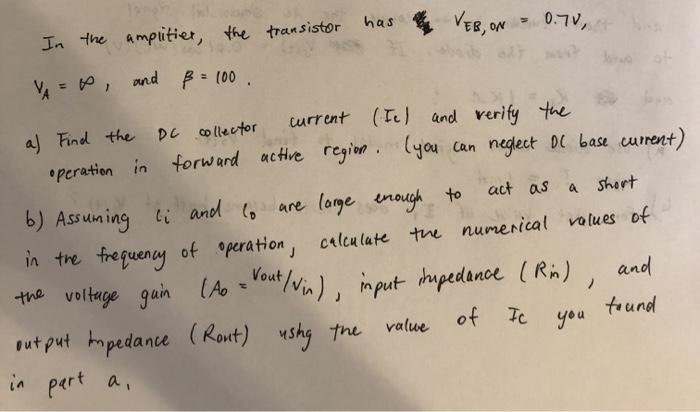 In the amplifier, the transistor has VEB, ON = 0.7V,
VA = ∞, and β = 100.
a) Find the DC collector current (Ic) and verify the
operation in forward active region. (you can neglect DC base current)
b) Assuming Ci and Co are large enough to act as a short
in the frequency of operation, calculate the numerical values of
the voltage gain (Ao = Vout/Vin), input impedance (Rin), and
output impedance (Rout) using the value of Ic you found
in part a.